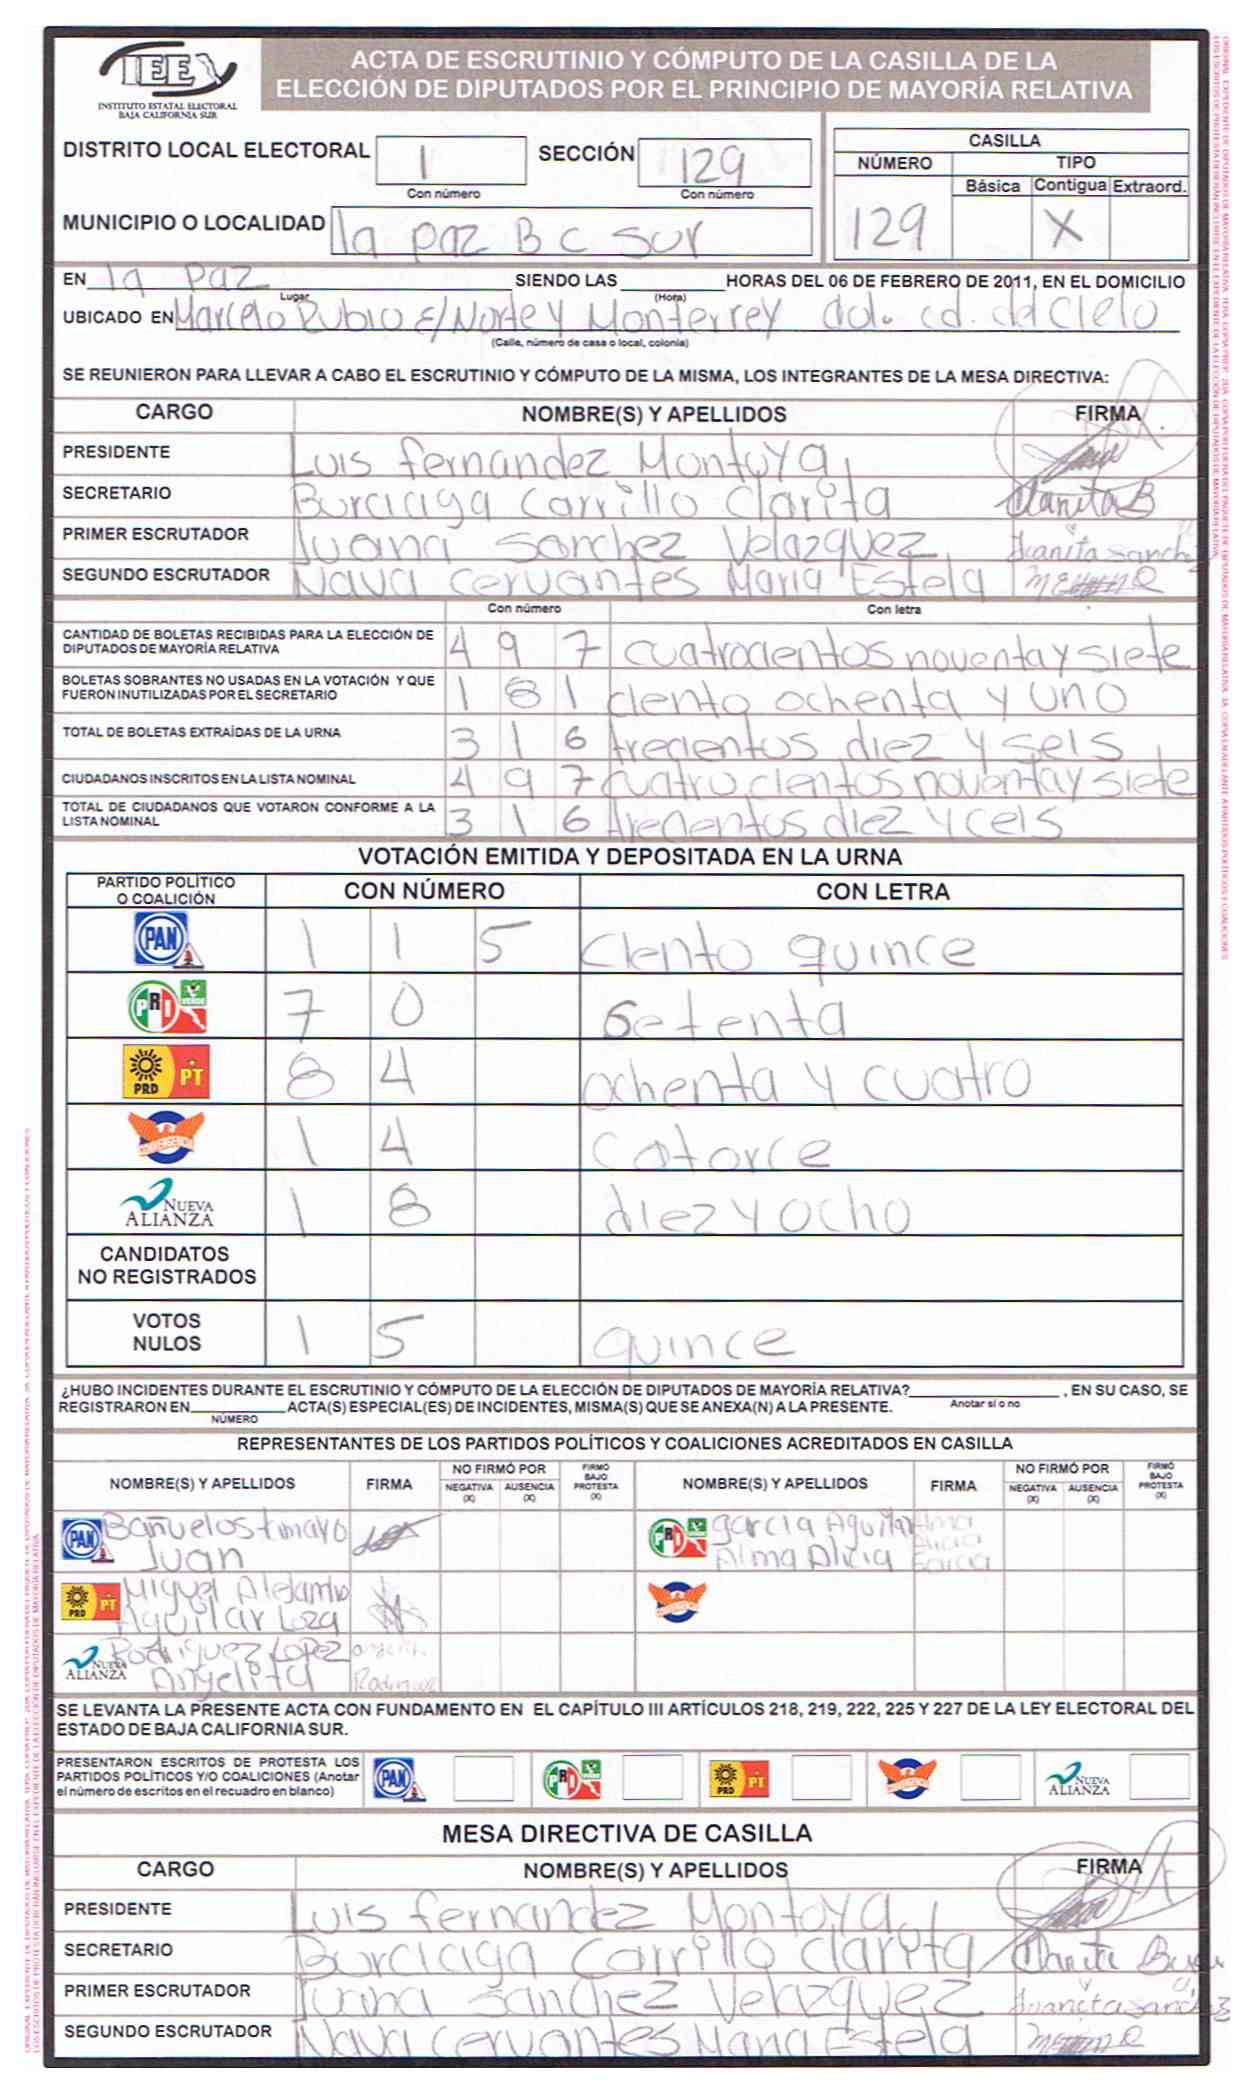 IEE
INSTITUTO ESTATAL ELECTORAL
BAJA CALIFORNIA SUR
ACTA DE ESCRUTINIO Y CÓMPUTO DE LA CASILLA DE LA
ELECCIÓN DE DIPUTADOS POR EL PRINCIPIO DE MAYORÍA RELATIVA
DISTRITO LOCAL ELECTORAL 1 SECCIÓN 129
Con número Con número
MUNICIPIO O LOCALIDAD la paz B C Sur
CASILLA
NÚMERO TIPO
Básica Contigua Extraord.
129 X
EN la paz SIENDO LAS HORAS DEL 06 DE FEBRERO DE 2011, EN EL DOMICILIO
Lugar (Hora)
UBICADO EN Marcelo Rubio E/Norte y Monterrey col. cd. del Cielo
(Calle, número de casa o local, colonia)
SE REUNIERON PARA LLEVAR A CABO EL ESCRUTINIO Y CÓMPUTO DE LA MISMA, LOS INTEGRANTES DE LA MESA DIRECTIVA:
CARGO NOMBRE(S) Y APELLIDOS FIRMA
PRESIDENTE Luis fernandez Montoya
SECRETARIO Burciaga Carrillo Clarita Clarita B
PRIMER ESCRUTADOR Juana Sanchez Velazquez Juanita Sanchez
SEGUNDO ESCRUTADOR Nava Cervantes Maria Estela
Con número Con letra
CANTIDAD DE BOLETAS RECIBIDAS PARA LA ELECCIÓN DE
DIPUTADOS DE MAYORÍA RELATIVA 4 9 7 cuatrocientos noventa y siete
BOLETAS SOBRANTES NO USADAS EN LA VOTACIÓN Y QUE
FUERON INUTILIZADAS POR EL SECRETARIO 1 8 1 ciento ochenta y uno
TOTAL DE BOLETAS EXTRAÍDAS DE LA URNA 3 1 6 trecientos diez y seis
CIUDADANOS INSCRITOS EN LA LISTA NOMINAL 4 9 7 cuatro cientos noventa y siete
TOTAL DE CIUDADANOS QUE VOTARON CONFORME A LA
LISTA NOMINAL 3 1 6 trecientos diez y ceis
VOTACIÓN EMITIDA Y DEPOSITADA EN LA URNA
PARTIDO POLÍTICO
O COALICIÓN CON NÚMERO CON LETRA
PAN 1 1 5 Ciento quince
PRI VERDE 7 0 Setenta
PRD PT 8 4 ochenta y cuatro
CONVERGENCIA 1 4 catorce
NUEVA ALIANZA 1 8 diez y ocho
CANDIDATOS
NO REGISTRADOS
VOTOS
NULOS 1 5 quince
¿HUBO INCIDENTES DURANTE EL ESCRUTINIO Y CÓMPUTO DE LA ELECCIÓN DE DIPUTADOS DE MAYORÍA RELATIVA? , EN SU CASO, SE
REGISTRARON EN ACTA(S) ESPECIAL(ES) DE INCIDENTES, MISMA(S) QUE SE ANEXA(N) A LA PRESENTE. Anotar sí o no
NÚMERO
REPRESENTANTES DE LOS PARTIDOS POLÍTICOS Y COALICIONES ACREDITADOS EN CASILLA
NOMBRE(S) Y APELLIDOS FIRMA NO FIRMÓ POR NEGATIVA (X) AUSENCIA (X) FIRMÓ BAJO PROTESTA (X) NOMBRE(S) Y APELLIDOS FIRMA NO FIRMÓ POR NEGATIVA (X) AUSENCIA (X) FIRMÓ BAJO PROTESTA (X)
PAN Bañuelos tmayo
Juan
PRI garcia Aguilar
Alma Alicia
Alma
Alicia
Garcia
PRD PT Miguel Alejandro
Aguilar Loza
CONVERGENCIA
NUEVA ALIANZA Rodriguez Lopez
Angelita
Angelita
Rodriguez
SE LEVANTA LA PRESENTE ACTA CON FUNDAMENTO EN EL CAPÍTULO III ARTÍCULOS 218, 219, 222, 225 Y 227 DE LA LEY ELECTORAL DEL
ESTADO DE BAJA CALIFORNIA SUR.
PRESENTARON ESCRITOS DE PROTESTA LOS
PARTIDOS POLÍTICOS Y/O COALICIONES (Anotar
el número de escritos en el recuadro en blanco)
PAN PRI PRD PT CONVERGENCIA NUEVA ALIANZA
MESA DIRECTIVA DE CASILLA
CARGO NOMBRE(S) Y APELLIDOS FIRMA
PRESIDENTE Luis fernandez Montoya
SECRETARIO Burciaga Carrillo Clarita Clarita
PRIMER ESCRUTADOR Juana Sanchez Velazquez Juanita Sanchez
SEGUNDO ESCRUTADOR Nava Cervantes Maria Estela